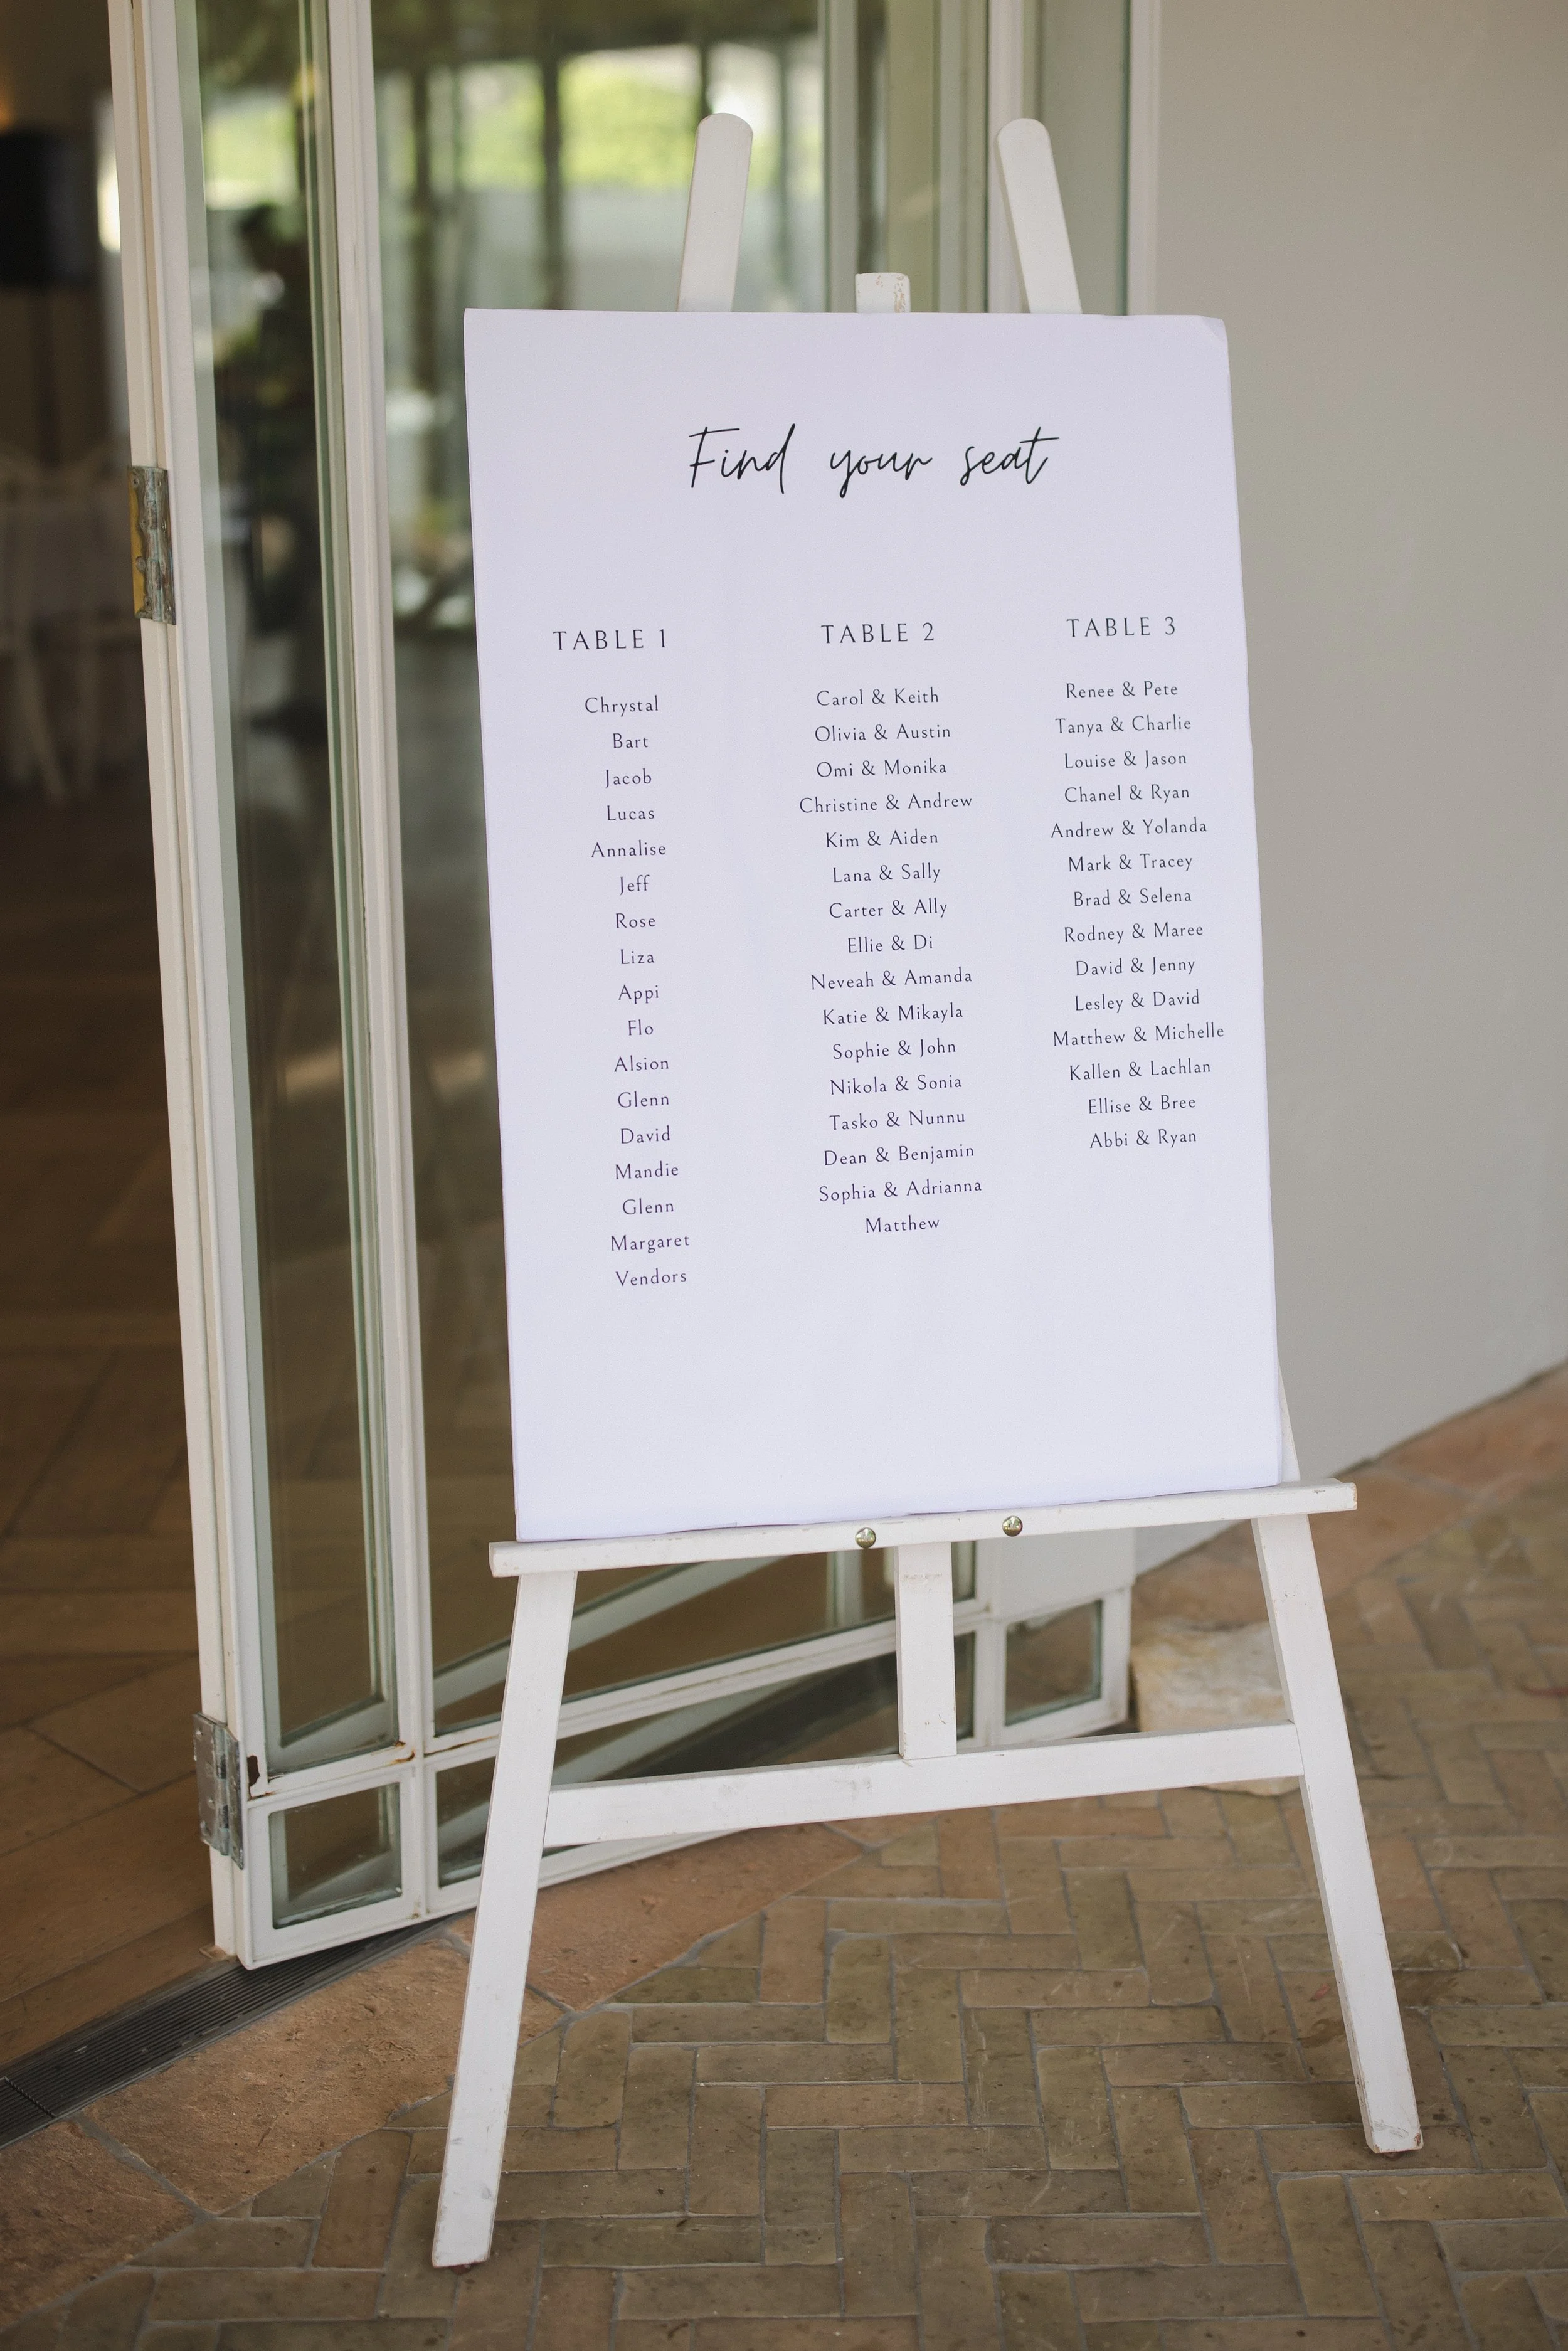 Find your seat
TABLE 1
Chrystal
Bart
Jacob
Lucas
Annalise
Jeff
Rose
Liza
Appi
Flo
Alsion
Glenn
David
Mandie
Glenn
Margaret
Vendors
TABLE 2
Carol & Keith
Olivia & Austin
Omi & Monika
Christine & Andrew
Kim & Aiden
Lana & Sally
Carter & Ally
Ellie & Di
Neveah & Amanda
Katie & Mikayla
Sophie & John
Nikola & Sonia
Tasko & Nunnu
Dean & Benjamin
Sophia & Adrianna
Matthew
TABLE 3
Renee & Pete
Tanya & Charlie
Louise & Jason
Chanel & Ryan
Andrew & Yolanda
Mark & Tracey
Brad & Selena
Rodney & Maree
David & Jenny
Lesley & David
Matthew & Michelle
Kallen & Lachlan
Ellise & Bree
Abbi & Ryan